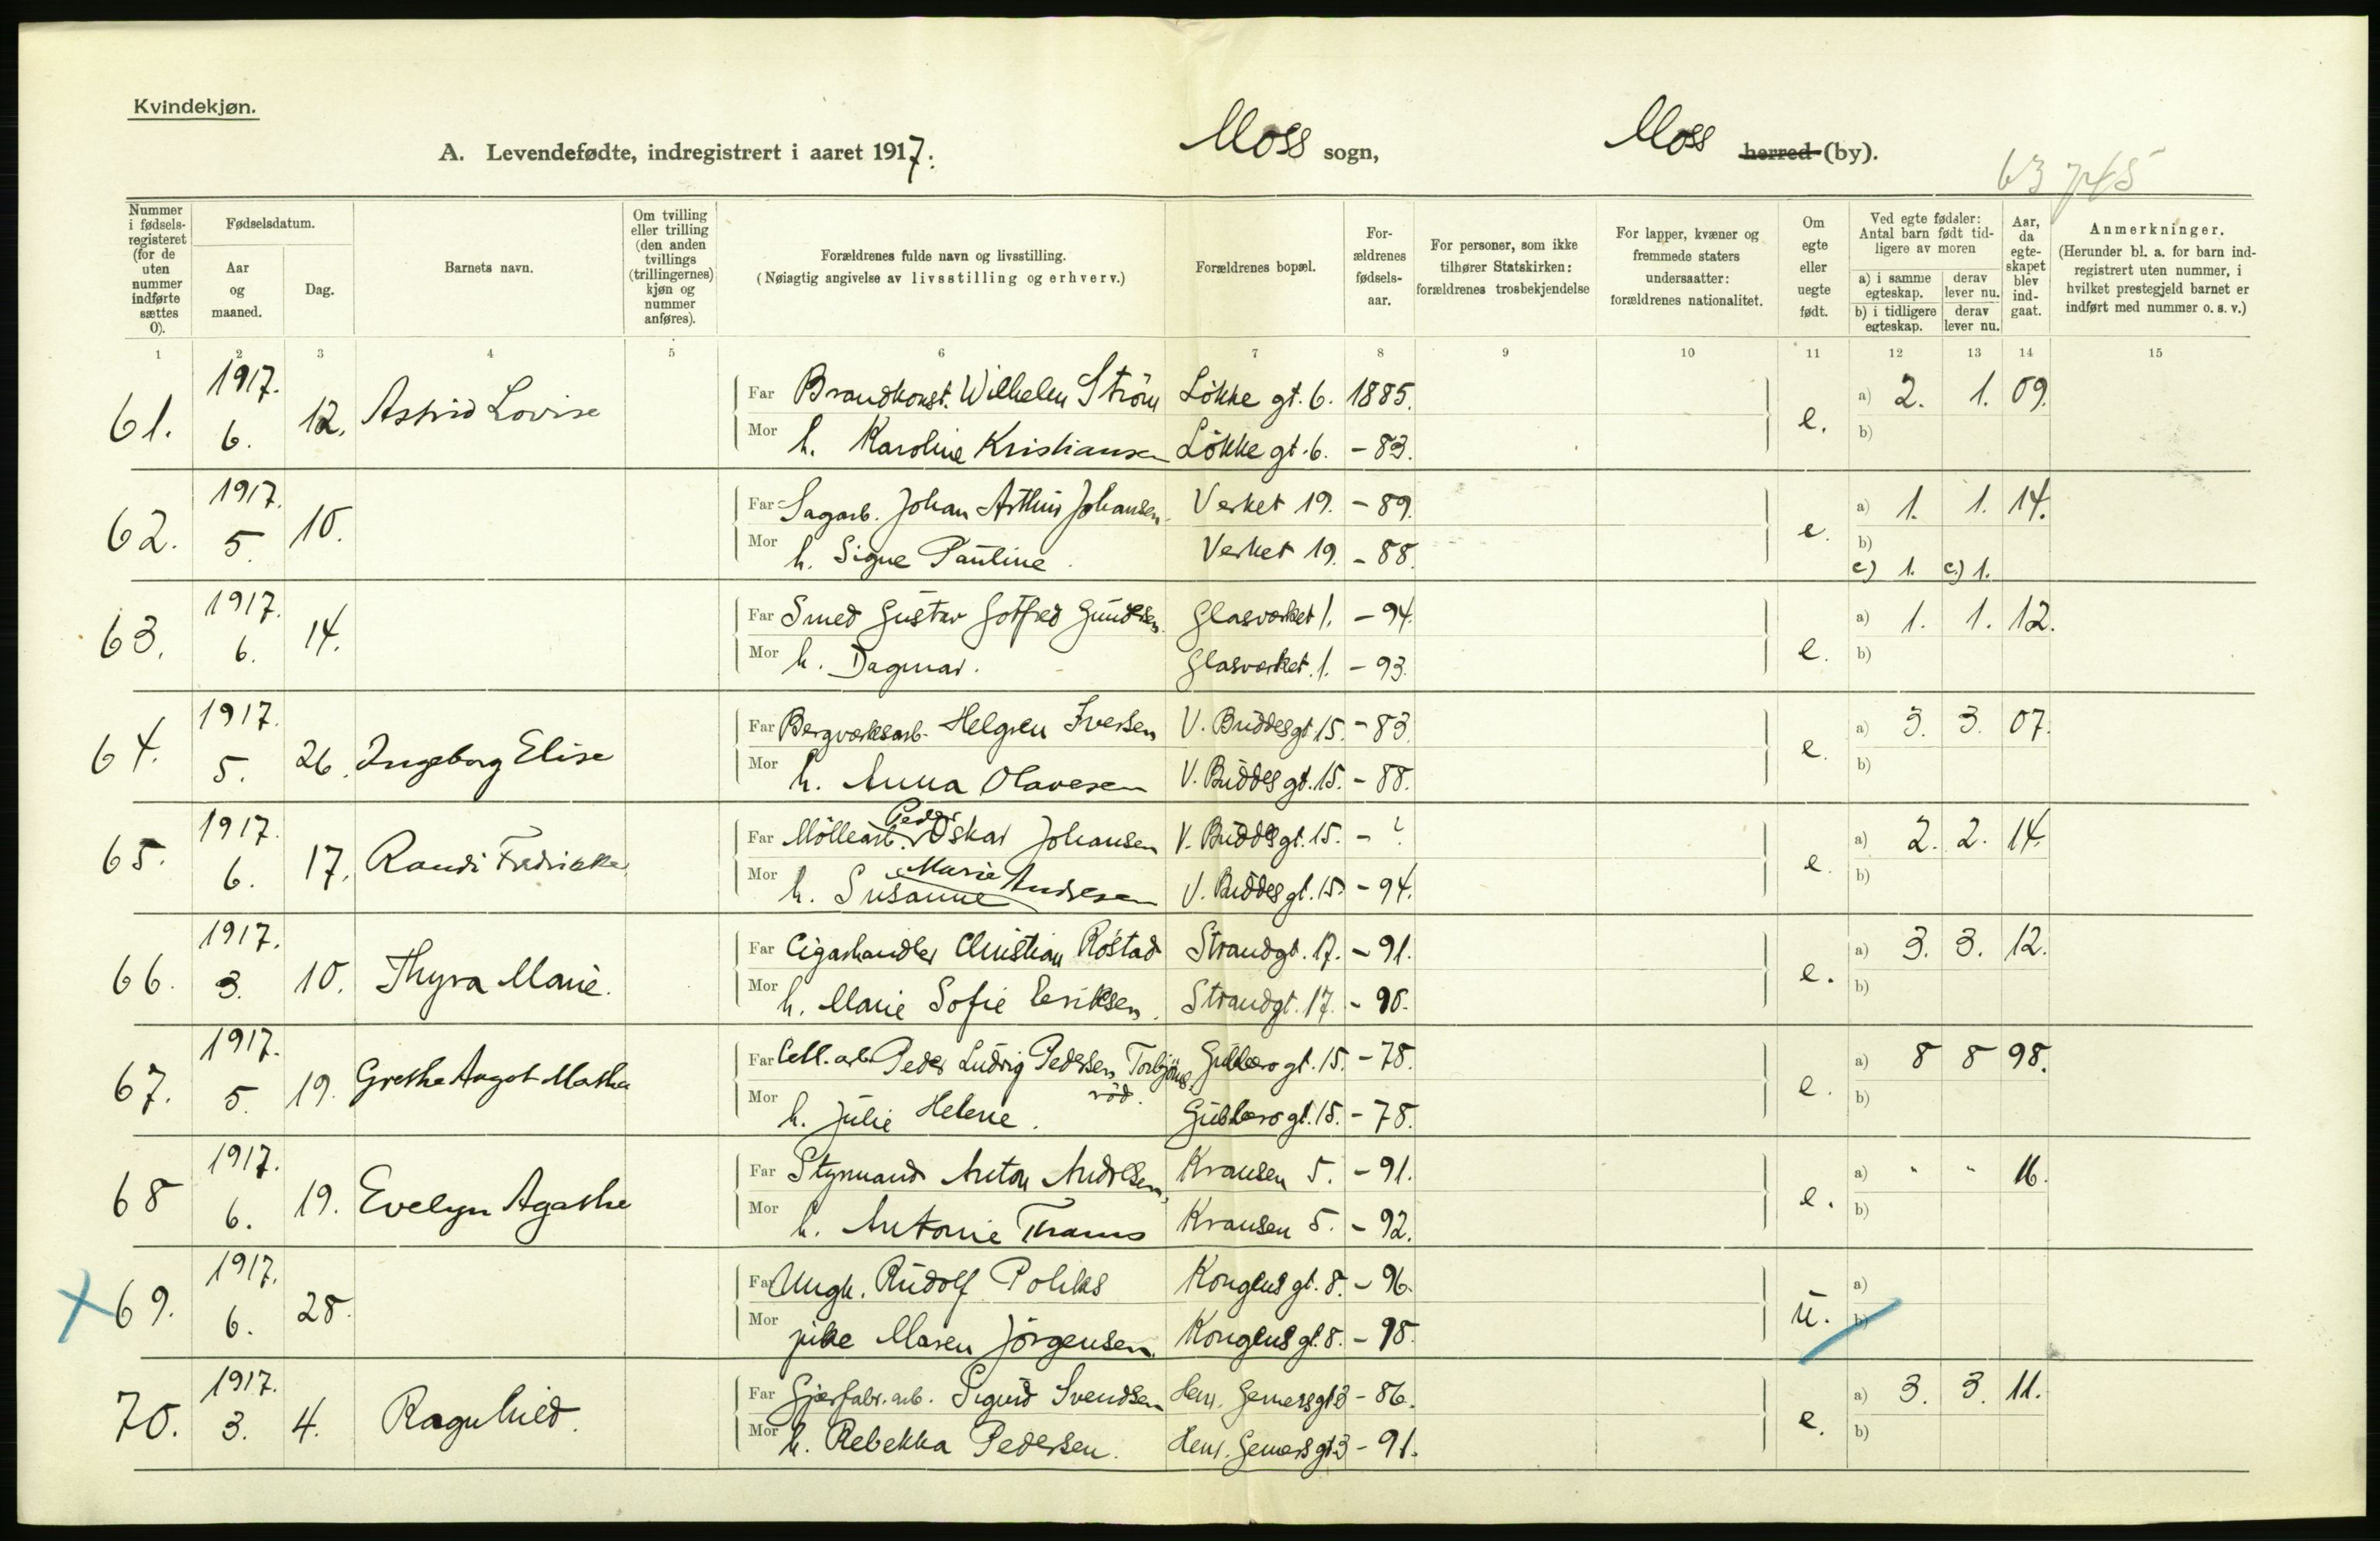 Kvindekjøn.
A. Levendefødte, indregistrert i aaret 1917. Moss sogn, Moss herred (by).
Nummer i fødselsregisteret (for de uten nummer indførte sættes 0).
Fødselsdatum.
Aar og maaned.
Dag.
Barnets navn.
Om tvilling eller trilling (den anden tvillings (trillingernes) kjøn og nummer anføres).
Forældrenes fulde navn og livsstilling.
(Nøiagtig angivelse av livsstilling og erhverv.)
Forældrenes bopæl.
Forældrenes fødselsaar.
For personer, som ikke tilhører Statskirken: forældrenes trosbekjendelse
For lapper, kvæner og fremmede staters undersaatter: forældrenes nationalitet.
Om egte eller uegte født.
Ved egte fødsler: Antal barn født tidligere av moren
a) i samme egteskap.
derav lever nu.
b) i tidligere egteskap.
derav lever nu.
Aar, da egteskapet blev indgaat.
Anmerkninger.
(Herunder bl. a. for barn indregistrert uten nummer, i hvilket prestegjeld barnet er indført med nummer o. s. v.)
1 2 3 4 5 6 7 8 9 10 11 12 13 14 15
61. 1917. 6. 12. Astrid Lovise
Far Brandkonst. Wilhelm Ström Løkke gt. 6. 1885. e. a) 2. 1. 09.
Mor h. Karoline Kristiansen Løkke gt. 6. - 83. b)
62. 1917. 5. 10.
Far Sagarb. Johan Arthur Johansen. Verket 19. - 89. e. a) 1. 1. 14.
Mor h. Signe Pauline. Verket 19. - 88. b)
c) 1. c) 1.
63. 1917. 6. 14.
Far Smed Gustav Gotfred Gundersen. Glasværket 1. - 94. e. a) 1. 1. 12.
Mor h. Dagmar. Glasværket. 1. - 93. b)
64. 1917. 5. 26. Ingeborg Elise
Far Bergværksarb. Helgren Iversen V. Buddes gt 15. - 83. e. a) 3. 3. 07.
Mor h. Anna Olavesen V. Buddes gt. 15. - 88. b)
65. 1917. 6. 17. Randi Fredrikke
Far Møllearb. Peder Oskar Johansen V. Buddes gt. 15. - ? e. a) 2. 2. 14.
Mor h. Susanne Marie Andresen V. Buddes gt. 15 - 94. b)
66. 1917. 3. 10. Thyra Marie.
Far Cigarhandler Christian Røstad Strandgt. 17. - 91. e. a) 3. 3. 12.
Mor h. Marie Sofie Eriksen. Strandgt. 17. - 90. b)
67. 1917. 5. 19. Grethe Angot Martha
Far Cell. arb. Peder Ludvig Pedersen Torbjörns- gt. 15. - 78. e. a) 8 8 98.
röd.
Mor h. Julie Helene. gt. 15. - 78. b)
68 1917. 6. 19. Evelyn Agathe
Far Styrmand Anton Andresen, Kransen 5. - 91. e. a) " " 16.
Mor h. Antonie Thams Kransen 5. - 92. b)
69. 1917. 6. 28.
Far Ungk. Rudolf Kongens gt. 8. - 96. u. a)
Mor pike Maren Jörgensen. Kongens gt. 8. - 98. b)
70. 1917. 3. 4. Ragnhild.
Far Gjærfabr. arb. Sigurd Svendsen Henr. Gerners gt 3 - 86. e. a) 3. 3. 11.
Mor h. Rebekka Pedersen. Henr. Gerners gt 3 - 91. b)